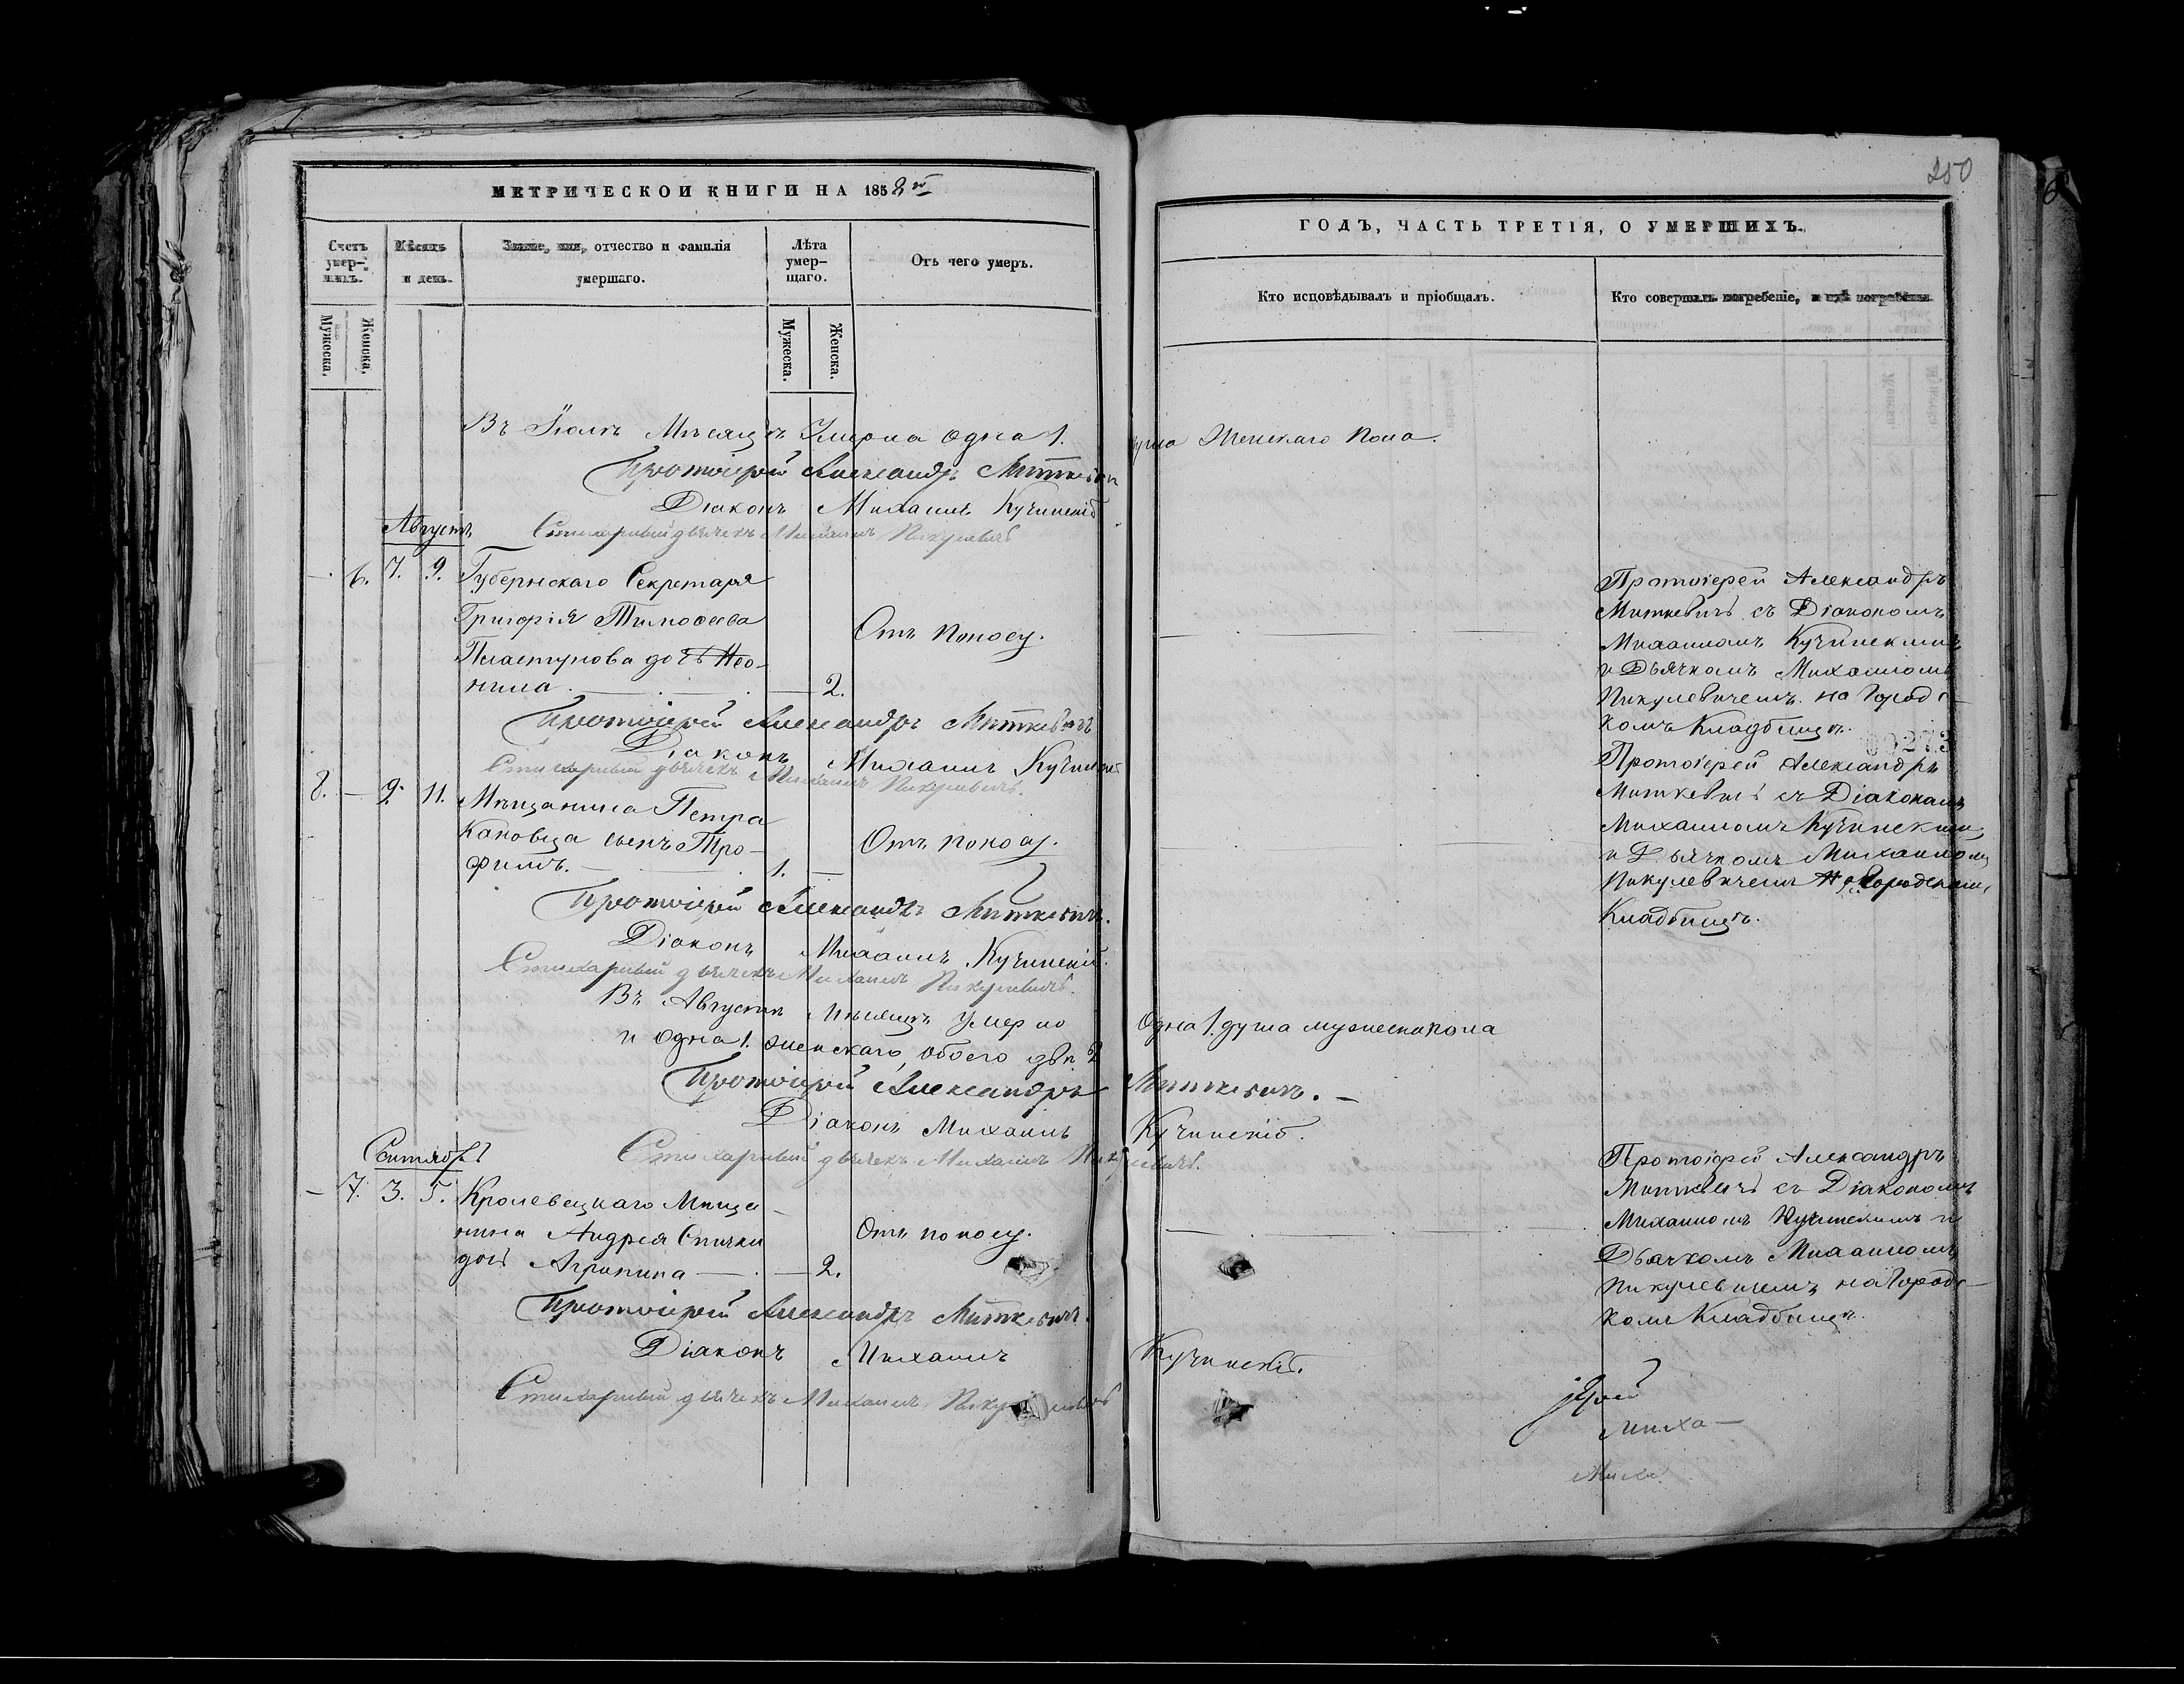 МЕТРИЧЕСКОЙ КНИГИ НА 1858й
Счетъ умер-шихъ.
Мѣсяцъ и день.
Званіе, имя, отчество и фамилія умершаго.
Лѣта умер-шаго.
Отъ чего умеръ.
Мужеска.
Женска.
Мужеска.
Женска.
Въ Іюлѣ Мѣсяцѣ Умерла одна 1.
Протоіерей Александръ Миткевич
Діаконъ Михаилъ Кучинскій
Августъ
Стихарный дьячекъ Михаилъ Пикулевичъ
— 6. 7. 9. Губернскаго Секретаря
Григорія Тимофеева
Отъ поносу.
Пластунова дочь Нео-
нила. — 2.
Протоіерей Александръ Миткевичъ
Діаконъ Михаилъ Кучинскій
Стихарный дьячекъ Михаилъ Пикулевичъ.
8. — 9. 11. Мѣщанина Петра
сынъ Тро-
Отъ поносу.
фимъ. — 1. —
Протоіерей Александръ Миткевичъ.
Діаконъ Михаилъ Кучинскій.
Стихарный дьячекъ Михаилъ Пикулевичъ.
Въ Августѣ Мѣсяцѣ Умерло
и одна 1. женскаго, обоего 2
Протоіерей Александръ
Діаконъ Михаилъ
Сентябрь
Стихарный дьячекъ Михаилъ Пик
— 7. 3. 5. Кролевецкаго Мѣща-
нина Андрея Спички
Отъ поносу.
дочь Агрипина — 2.
Протоіерей Александръ Миткевичъ.
Діаконъ Михаилъ
Стихарный дьячекъ Михаилъ Пикулевичъ
250
ГОДЪ, ЧАСТЬ ТРЕТІЯ, О УМЕРШИХЪ.
Кто исповѣдывалъ и пріобщалъ.
Кто совершалъ погребеніе, и гдѣ погребены
душа Женскаго пола.
Протоіерей Александръ
Миткевичъ съ Діакономъ
Михаиломъ Кучинскимъ
и Дьячкомъ Михаиломъ
Пикулевичемъ. на Городс-
комъ Кладбищѣ.
00273
Протоіерей Александръ
Миткевичъ съ Діакономъ
Михаиломъ Кучинскимъ
и Дьячкомъ Михаиломъ
Пикулевичемъ на Городскомъ
Кладбищѣ.
Одна 1. душа мужеска пола
Миткевичъ. —
Кучинскій.
улевичъ.
Протоіерей Александръ
Миткевичъ съ Діакономъ
Михаиломъ Кучинскимъ и
Дьячкомъ Михаиломъ
Пикулевичемъ на Городс-
комъ Кладбищѣ.
Кучинскій.
іерей
Миха—
Миха